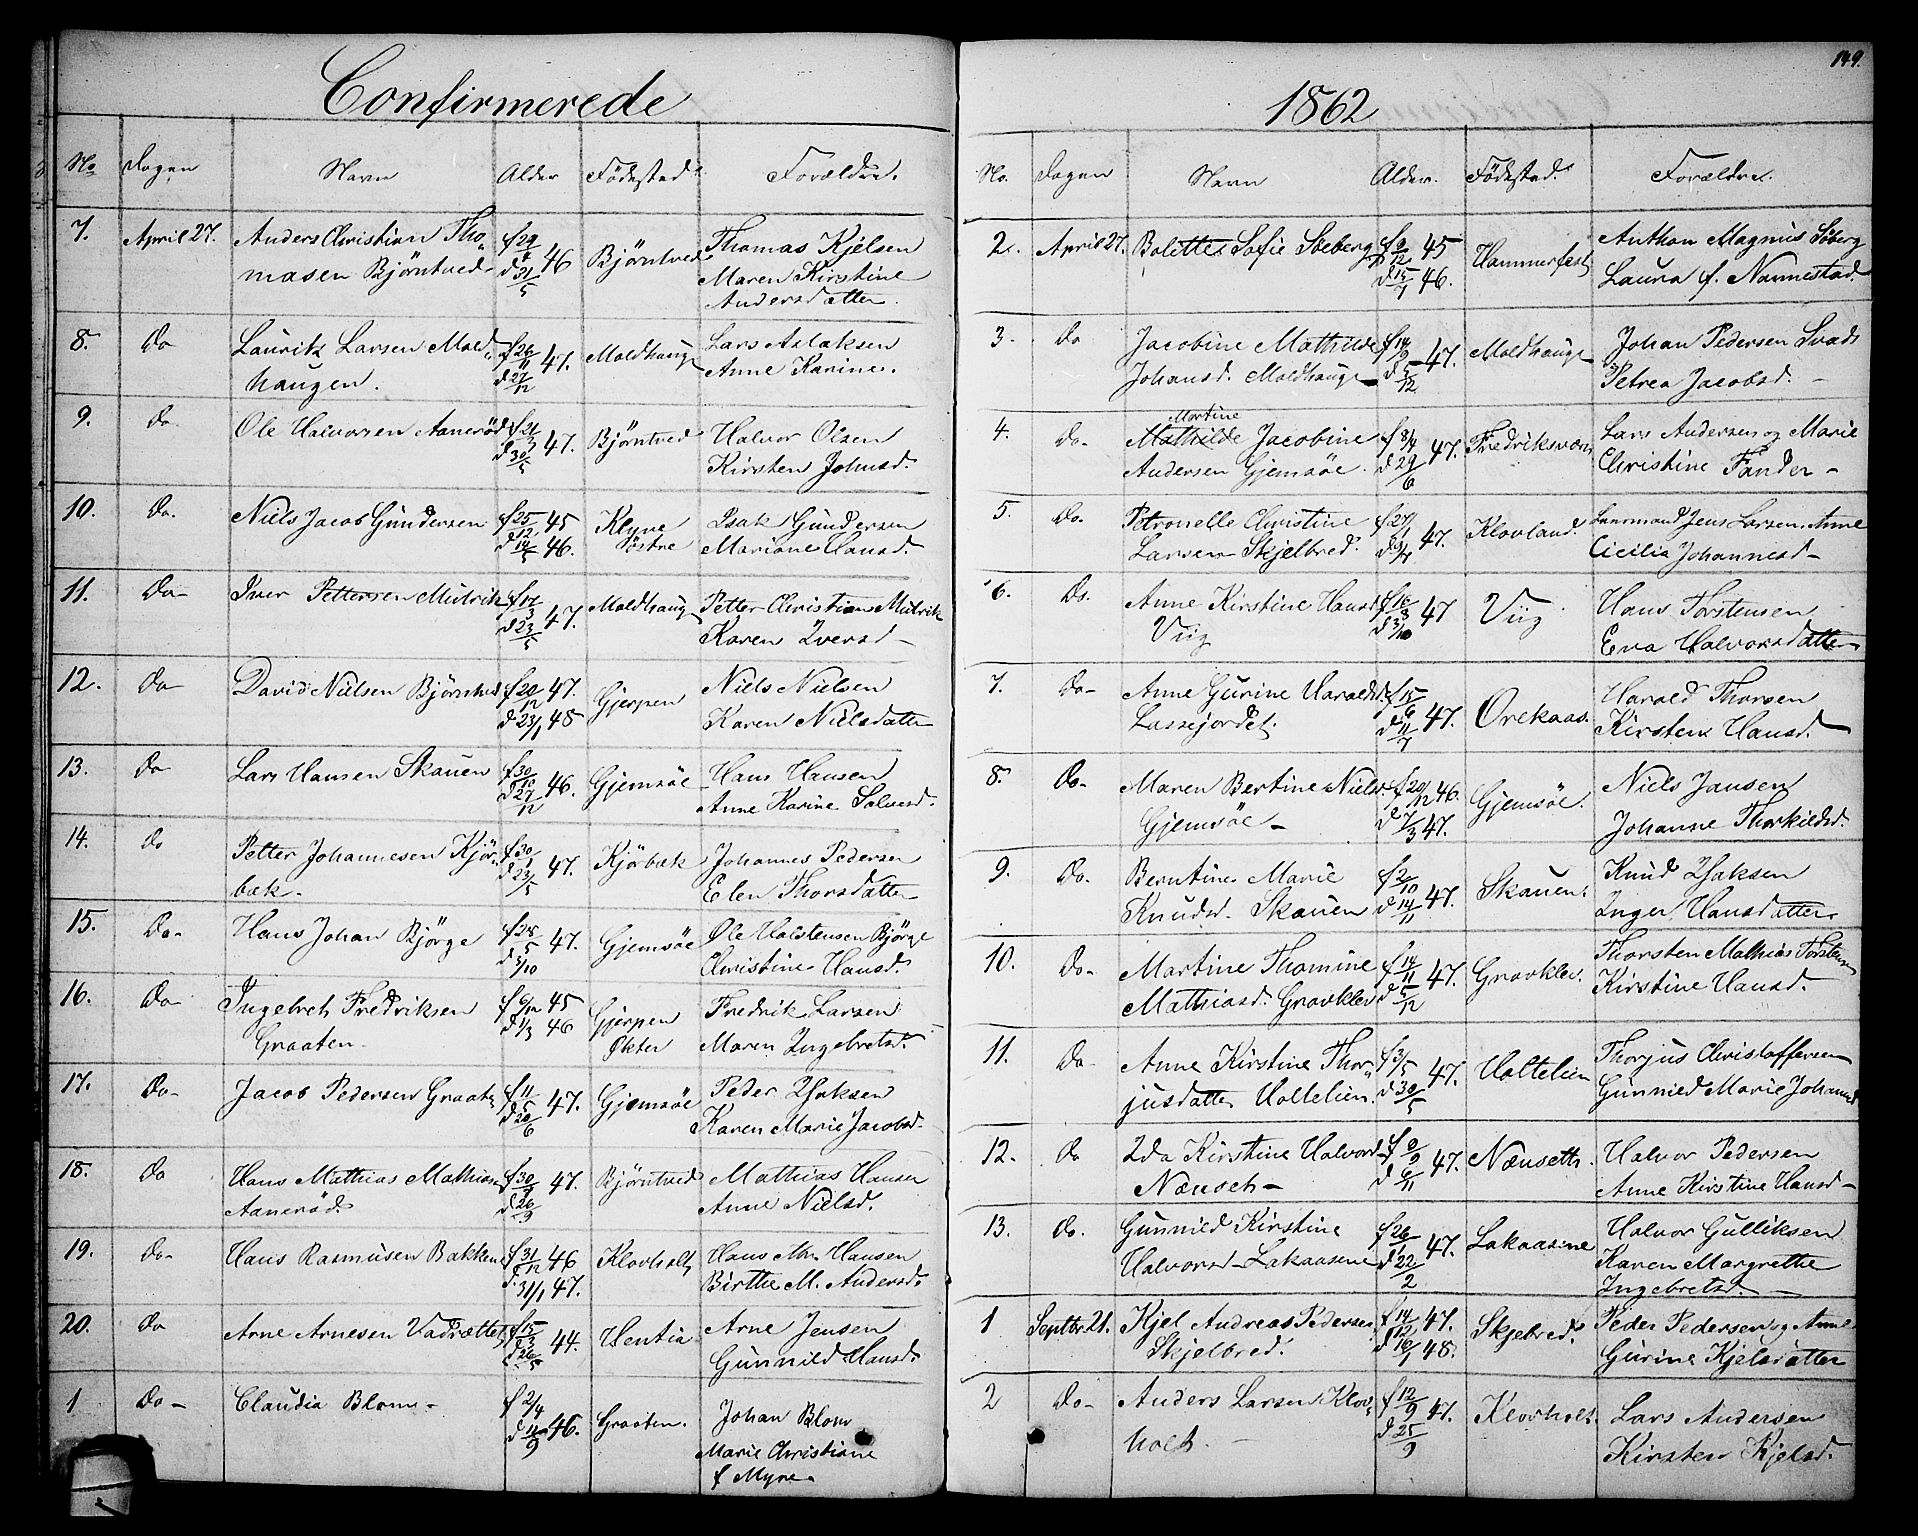 Confirmerede
No Dagen Navn Alder Födested Forældre.
7. April 27. Anders Christian Tho„ f 29/4 46 Bjørntved Thomas Kjelsen
masen Bjørntved d 31/5 Maren Kirstine
Andersdatter.
8. Do Lauritz Larsen Mold„ f 26/11 47. Moldhaug Lars Aslaksen
haugen. d 27/12 Anne Karine.
9. Do Ole Halvorsen Aanerød f 21/3 47. Bjørntved Halvor Olsen
d 30/5 Kirsten Johnsd.
10. Do. Niels Jacob Gundersen f 25/12 45 Klyve Isak Gundersen
d 14/5 46. østre Mariane Hansd.
11. Do- Iver Pettersen Mulrik f 17/3 47. Moldhaug Petter Christian Mulrik
d 23/5 Karen Iversd-
12. Do David Nielsen Bjørntved f 20/12 47. Gjerpen Niels Nielsen
d 23/1 48 Karen Nielsdatter
13. Do Lars Hansen Skauen f 30/10 46. Gjemsøe Hans Hansen
d 27/12 Anne Karine Halvorsd.
14. Do Petter Johannesen Kjør„ f 30/1 47. Kjørbæk Johannes Pedersen
bæk. d 23/5 Elen Thorsdatter
15. Do- Hans Johan Bjørge f 28/5 47. Gjemsøe Ole Halstensen Bjørge
d 3/10 Christine Hansd.
16. Do- Ingebret Fredriksen f 6/12 45 Gjerpen Fredrik Larsen
Graaten d 1/3 46 Økter Maren Ingebretsd.
17. Do- Jacob Pedersen Graaten f 11/5 47. Gjemsøe Peder Isaksen
d 20/6 Karen Marie Jacobsd.
18. Do Hans Mathias Mathias f 30/7 47. Bjørntved Mathias Hansen
Aanerød. d 26/9 Anne Nielsd.
19. Do- Hans Rasmusen Bakken f 31/12 46 Klovholt Hans Hansen
d. 31/1 47. Birthe M. Andersd.
20. Do Arne Arnesen Vadrættet f 15/3 44. Hentia Arne Jensen
d 26/5 Gunnild Hansd.
1 Do- Claudia Blom- f 2/4 46. Graaten. Johan Blom
d 11/9 Marie Christiane
f Myre.
149.
1862
No. Dagen Navn Alder. Fødested. Forældre.
2. April 27. Bolette Sofie Søeberg f 9/12 45 Hammerfest Anthon Magnus Søberg
d 15/7 46. Laura f. Nannestad.
3. Do Jacobine Mathilde f 14/9 47. Moldhaug Johan Pedersen Svads
Johansd. Moldhaug d 5/12 Petrea Jacobsd. -
Martine
4. Do- Mathilde Jacobine f 8/4 47. Fredriksværn Lars Andersen og Marie
Andersen Gjemsøe. d 29/6 Christine Fander-
5. Do. Petronelle Christine f 27/1 47. Klovland. Laurmand Jens Larsen. Anne
Larsen Skjelbred. d 9/4 Cicilia Johannesd-
6. Do. Anne Kirstine Hansd f 16/3 47 Viig Hans Torstensen
Viig d 3/10 Eva Halvorsdatter
7. Do- Anne Gurine Haraldsd. f 15/6 47. Orekaas. Harald Thorsen
Lassejordet. d 11/7 Kirsten Hansd.
8. Do- Maren Bertine Nielsd. f 20/12 46. Gjemsøe. Niels Jansen
Gjemsøe- d 7/3 47. Johanne Thorkildsd.
9. Do. Berntine Marie f 2/10 47. Skauen. Knud Isaksen
Knudsd. Skauen d 14/11 Inger Hansdatter
10. Do- Martine Thomine f 14/11 47. Gravklev. Thorsten Mathias Torstensen
Mathiasd. Gravklev d 5/12 Kirstine Hansd.
11. Do- Anne Kirstine Thor„ f 3/5 47. Holtelien Thorjus Christoffersen
jusdatter Holtelien d 30/5 Gunnild Marie Johansd
12. Do Ida Kirstine Halvord f 9/9 47. Nænseth. Halvor Pedersen
Nænseth- d 6/11 Anne Kirstine Hansd-
13. Do. Gunnild Kirstine f 26/1 47. Lakaasene Halvor Gulliksen
Halvorsd Lakaasene d 22/2 Karen Margrethe
Ingebretsd. -
1 Septbr 21. Kjel Andreas Pedersen f 14/12 47. Skjebred. Peder Pedersen og Anne
Skjelbred. d 16/1 48. Gurine Kjelsdatter
2 Do- Anders Larsen Klov„ f 12/9 47. Klovholt. Lars Andersen
holt. - d 25/9 Kirsten Kjelsd.